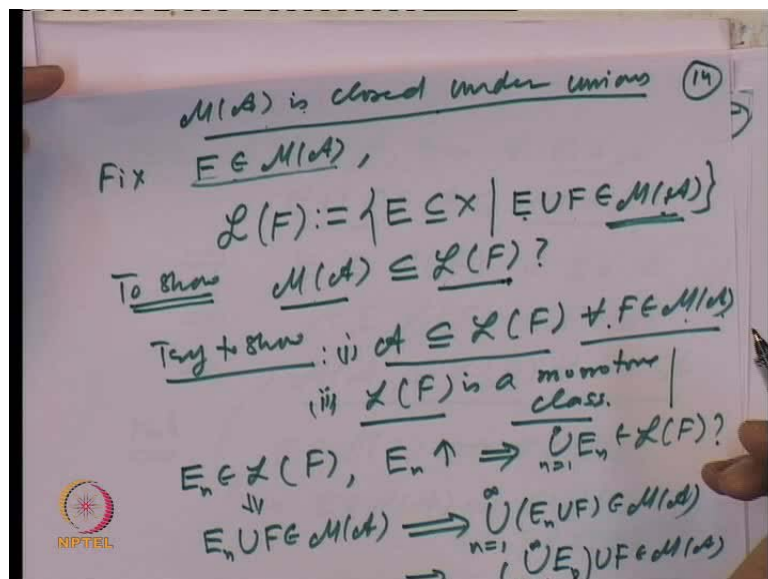 M(A) is closed under unions (14)
Fix E ∈ M(A),
L(F) := { E ⊆ X | E ∪ F ∈ M(A) }
To show M(A) ⊆ L(F) ?
Try to show : (i) A ⊆ L(F) ∀ F ∈ M(A)
(ii) L(F) is a monotone class.
E_n ∈ L(F), E_n ↑ ⟹ ⋃_{n=1}^∞ E_n ∈ L(F) ?
⇓
E_n ∪ F ∈ M(A) ⟹ ⋃_{n=1}^∞ (E_n ∪ F) ∈ M(A)
⟹ (⋃^∞ E_n) ∪ F ∈ M(A)
NPTEL